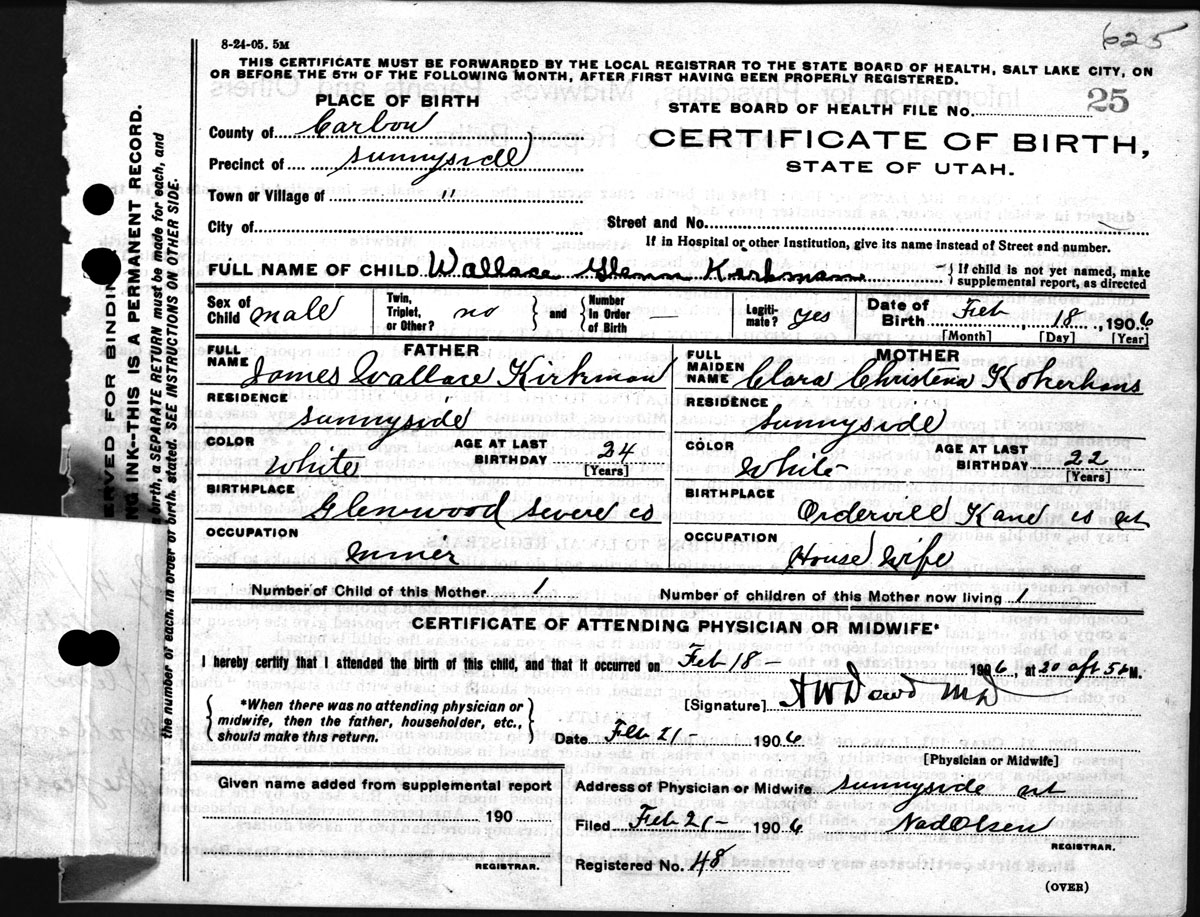 625
8-24-05. 5M
THIS CERTIFICATE MUST BE FORWARDED BY THE LOCAL REGISTRAR TO THE STATE BOARD OF HEALTH, SALT LAKE CITY, ON
OR BEFORE THE 5TH OF THE FOLLOWING MONTH, AFTER FIRST HAVING BEEN PROPERLY REGISTERED.
PLACE OF BIRTH
STATE BOARD OF HEALTH FILE No. 25
County of Carbon
CERTIFICATE OF BIRTH,
Precinct of Sunnyside
STATE OF UTAH.
Town or Village of "
City of
Street and No.
If in Hospital or other Institution, give its name instead of Street and number.
FULL NAME OF CHILD Wallace Glenn Kirkman } If child is not yet named, make
supplemental report, as directed
Sex of Child male Twin, Triplet, or Other? no } and { Number In Order of Birth Legiti-mate? yes Date of Birth Feb 18, 1906
[Month] [Day] [Year]
FATHER
MOTHER
FULL NAME James Wallace Kirkman
FULL MAIDEN NAME Clara Christena
RESIDENCE Sunnyside
RESIDENCE Sunnyside
COLOR White AGE AT LAST BIRTHDAY 24 [Years]
COLOR White AGE AT LAST BIRTHDAY 22 [Years]
BIRTHPLACE Glenwood Severe co
BIRTHPLACE Ordervill Kane co ut
OCCUPATION miner
OCCUPATION House Wife
Number of Child of this Mother 1 Number of children of this Mother now living 1
CERTIFICATE OF ATTENDING PHYSICIAN OR MIDWIFE*
I hereby certify that I attended the birth of this child, and that it occurred on Feb 18- 1906, at 20 aft 5 P M.
{ *When there was no attending physician or
midwife, then the father, householder, etc.,
should make this return. }
[Signature] A W Dowd M D
Date Feb 21- 1906
[Physician or Midwife]
Given name added from supplemental report
Address of Physician or Midwife Sunnyside ut
190
Filed Feb 21- 1906 Nad Olsen
REGISTRAR.
REGISTRAR.
Registered No. 48
(OVER)
NG INK-THIS IS A PERMANENT RECORD.
ERVED FOR BINDIN
birth, a SEPARATE RETURN must be made for each, and
the number of each, in order of birth, stated. SEE INSTRUCTIONS ON OTHER SIDE.